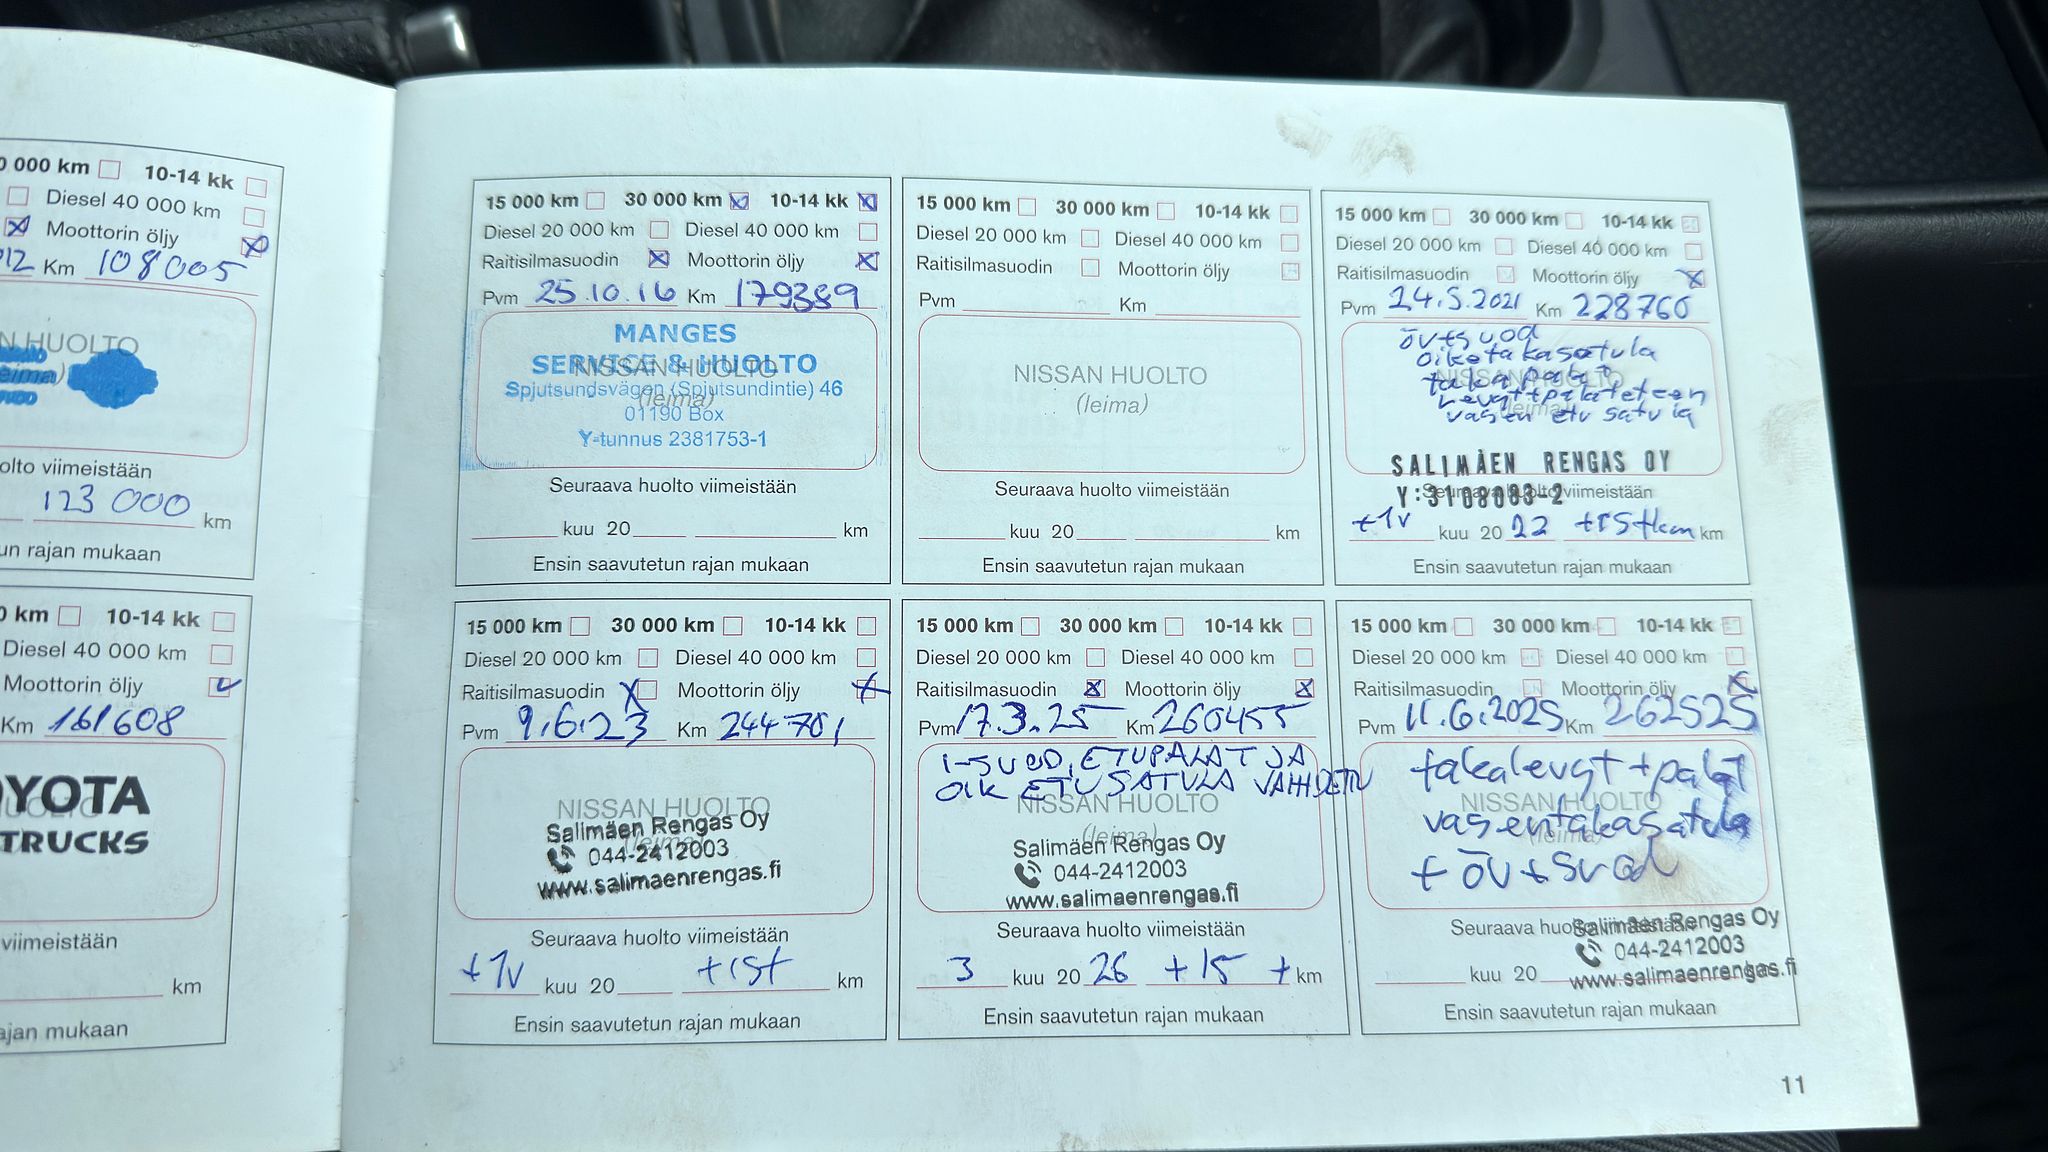 0 000 km 10-14 kk
Diesel 40 000 km
Moottorin öljy
012 Km 108005
N HUOLTO
(leima)
olto viimeistään
123 000 km
un rajan mukaan
0 km 10-14 kk
Diesel 40 000 km
Moottorin öljy
Km 161608
OYOTA
TRUCKS
viimeistään
km
ajan mukaan
15 000 km 30 000 km 10-14 kk
Diesel 20 000 km Diesel 40 000 km
Raitisilmasuodin Moottorin öljy
Pvm 25.10.16 Km 179389
MANGES
SERVICE & HUOLTO
NISSAN HUOLTO
Spjutsundsvägen (Spjutsundintie) 46
(leima)
01190 Box
Y-tunnus 2381753-1
Seuraava huolto viimeistään
kuu 20 km
Ensin saavutetun rajan mukaan
15 000 km 30 000 km 10-14 kk
Diesel 20 000 km Diesel 40 000 km
Raitisilmasuodin Moottorin öljy
Pvm Km
NISSAN HUOLTO
(leima)
Seuraava huolto viimeistään
kuu 20 km
Ensin saavutetun rajan mukaan
15 000 km 30 000 km 10-14 kk
Diesel 20 000 km Diesel 40 000 km
Raitisilmasuodin Moottorin öljy
Pvm 24.5.2021 Km 228760
öv+suod
oikeタkasatula
takapalat
NISSAN HUOLTO
levyt+palateteen
(leima)
vasen etu satula
SALIMÄEN RENGAS OY
Y:3108083-2
Seuraava huolto viimeistään
+1v kuu 20 22 +15tkm km
Ensin saavutetun rajan mukaan
15 000 km 30 000 km 10-14 kk
Diesel 20 000 km Diesel 40 000 km
Raitisilmasuodin Moottorin öljy
Pvm 9.6.23 Km 244701
NISSAN HUOLTO
Salimäen Rengas Oy
(leima)
044-2412003
www.salimaenrengas.fi
Seuraava huolto viimeistään
+1v kuu 20 +15t km
Ensin saavutetun rajan mukaan
15 000 km 30 000 km 10-14 kk
Diesel 20 000 km Diesel 40 000 km
Raitisilmasuodin Moottorin öljy
Pvm 17.3.25 Km 260455
I-SUOD, ETUPALAT JA
OIK ETUSATULA VAIHDETTU
NISSAN HUOLTO
(leima)
Salimäen Rengas Oy
044-2412003
www.salimaenrengas.fi
Seuraava huolto viimeistään
3 kuu 20 26 +15 t km
Ensin saavutetun rajan mukaan
15 000 km 30 000 km 10-14 kk
Diesel 20 000 km Diesel 40 000 km
Raitisilmasuodin Moottorin öljy
Pvm 11.6.2025 Km 262525
takalevyt+palat
NISSAN HUOLTO
vasentakasatula
(leima)
+ öv+suod
Salimäen Rengas Oy
Seuraava huolto viimeistään
044-2412003
kuu 20 km
www.salimaenrengas.fi
Ensin saavutetun rajan mukaan
11